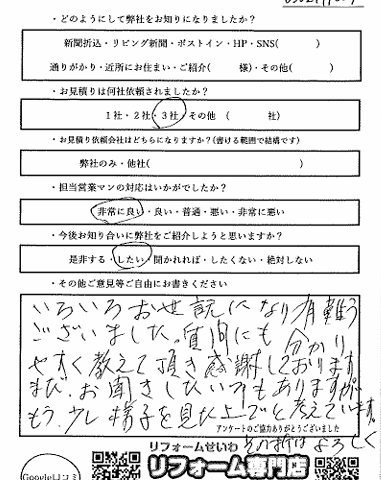 ・どのようにして弊社をお知りになりましたか？
新聞折込・リビング新聞・ポストイン・HP・SNS(　　　)
通りがかり・近所にお住まい・ご紹介(　　　様)・その他(　　　)
・お見積りは何社依頼されましたか？
1社・2社・3社・その他（　　　社）
・お見積り依頼会社はどちらになりますか？(書ける範囲で結構です)
弊社のみ・他社(　　　)
・担当営業マンの対応はいかがでしたか？
非常に良い・良い・普通・悪い・非常に悪い
・今後お知り合いに弊社をご紹介しようと思いますか？
是非する・したい・聞かれれば・したくない・絶対しない
・その他ご意見等ご自由にお書きください
いろいろお世話になり有難う
ございました。質問にも分かり
やすく教えて頂き感謝しております。
まだ、お聞きしたい　もありますが、
もう少し様子を見た上でと考えています。
アンケートのご協力ありがとうございました
その折はよろしく
リフォームせいわ
リフォーム専門店
Google口コミ